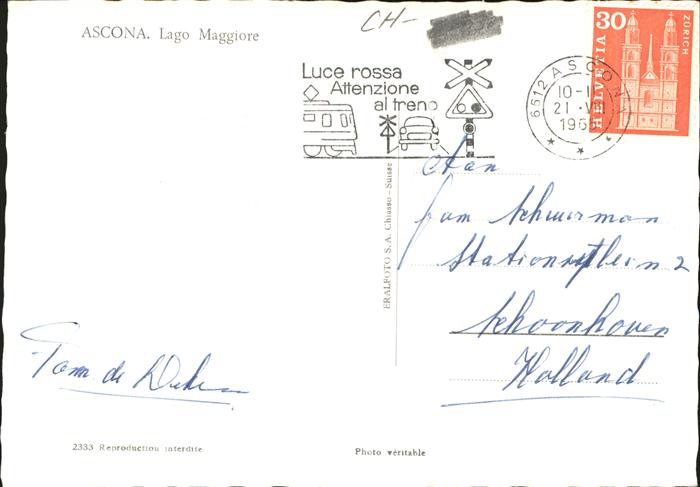 CH-
ASCONA. Lago Maggiore
Luce rossa
Attenzione
al treno
6612 ASCONA
10-11
21 VII
196
30
ZÜRICH
HELVETIA
Aan
fam Schuurman
Stationsplein 2
Schoonhoven
Holland
ERALFOTO S.A. Chiasso - Suisse
Fam de
2333 Reproduction interdite
Photo véritable